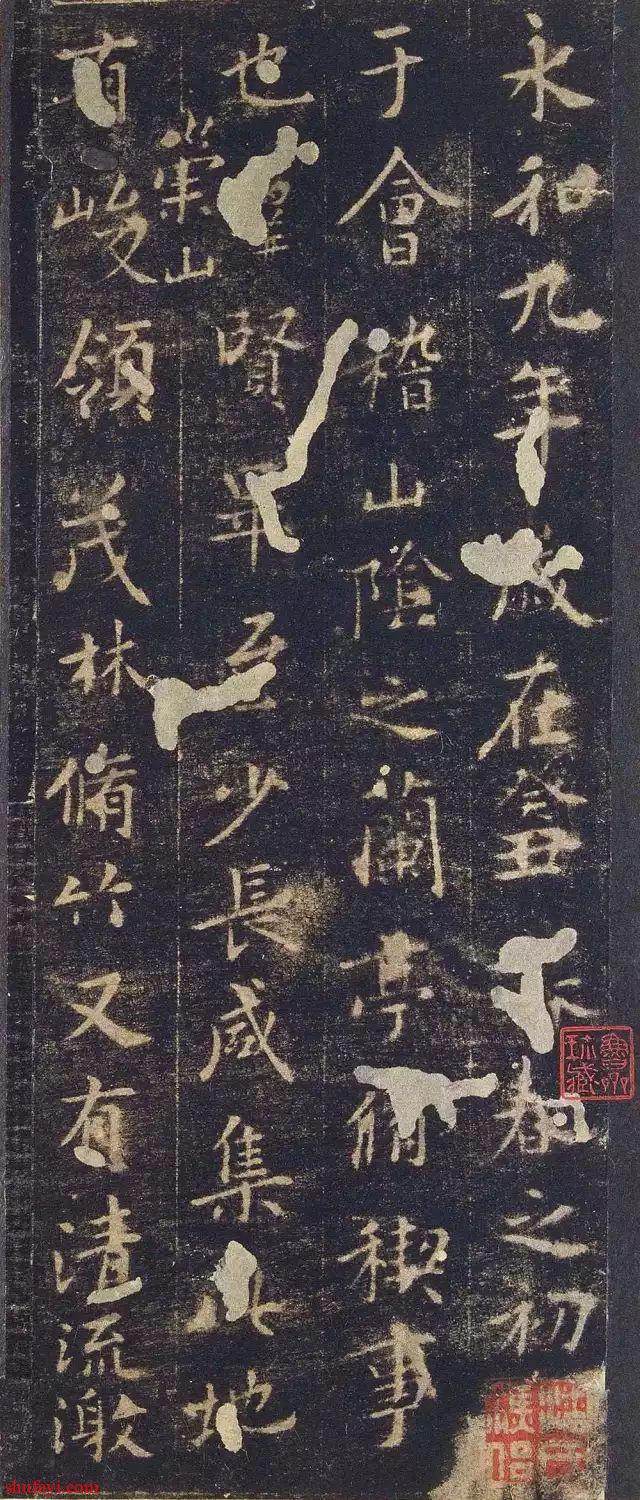 永和九年歲在癸丑暮春之初
于會稽山陰之蘭亭脩稧事
也羣賢畢至少長咸集此地
有崇山峻領茂林脩竹又有清流激
shufayi.com